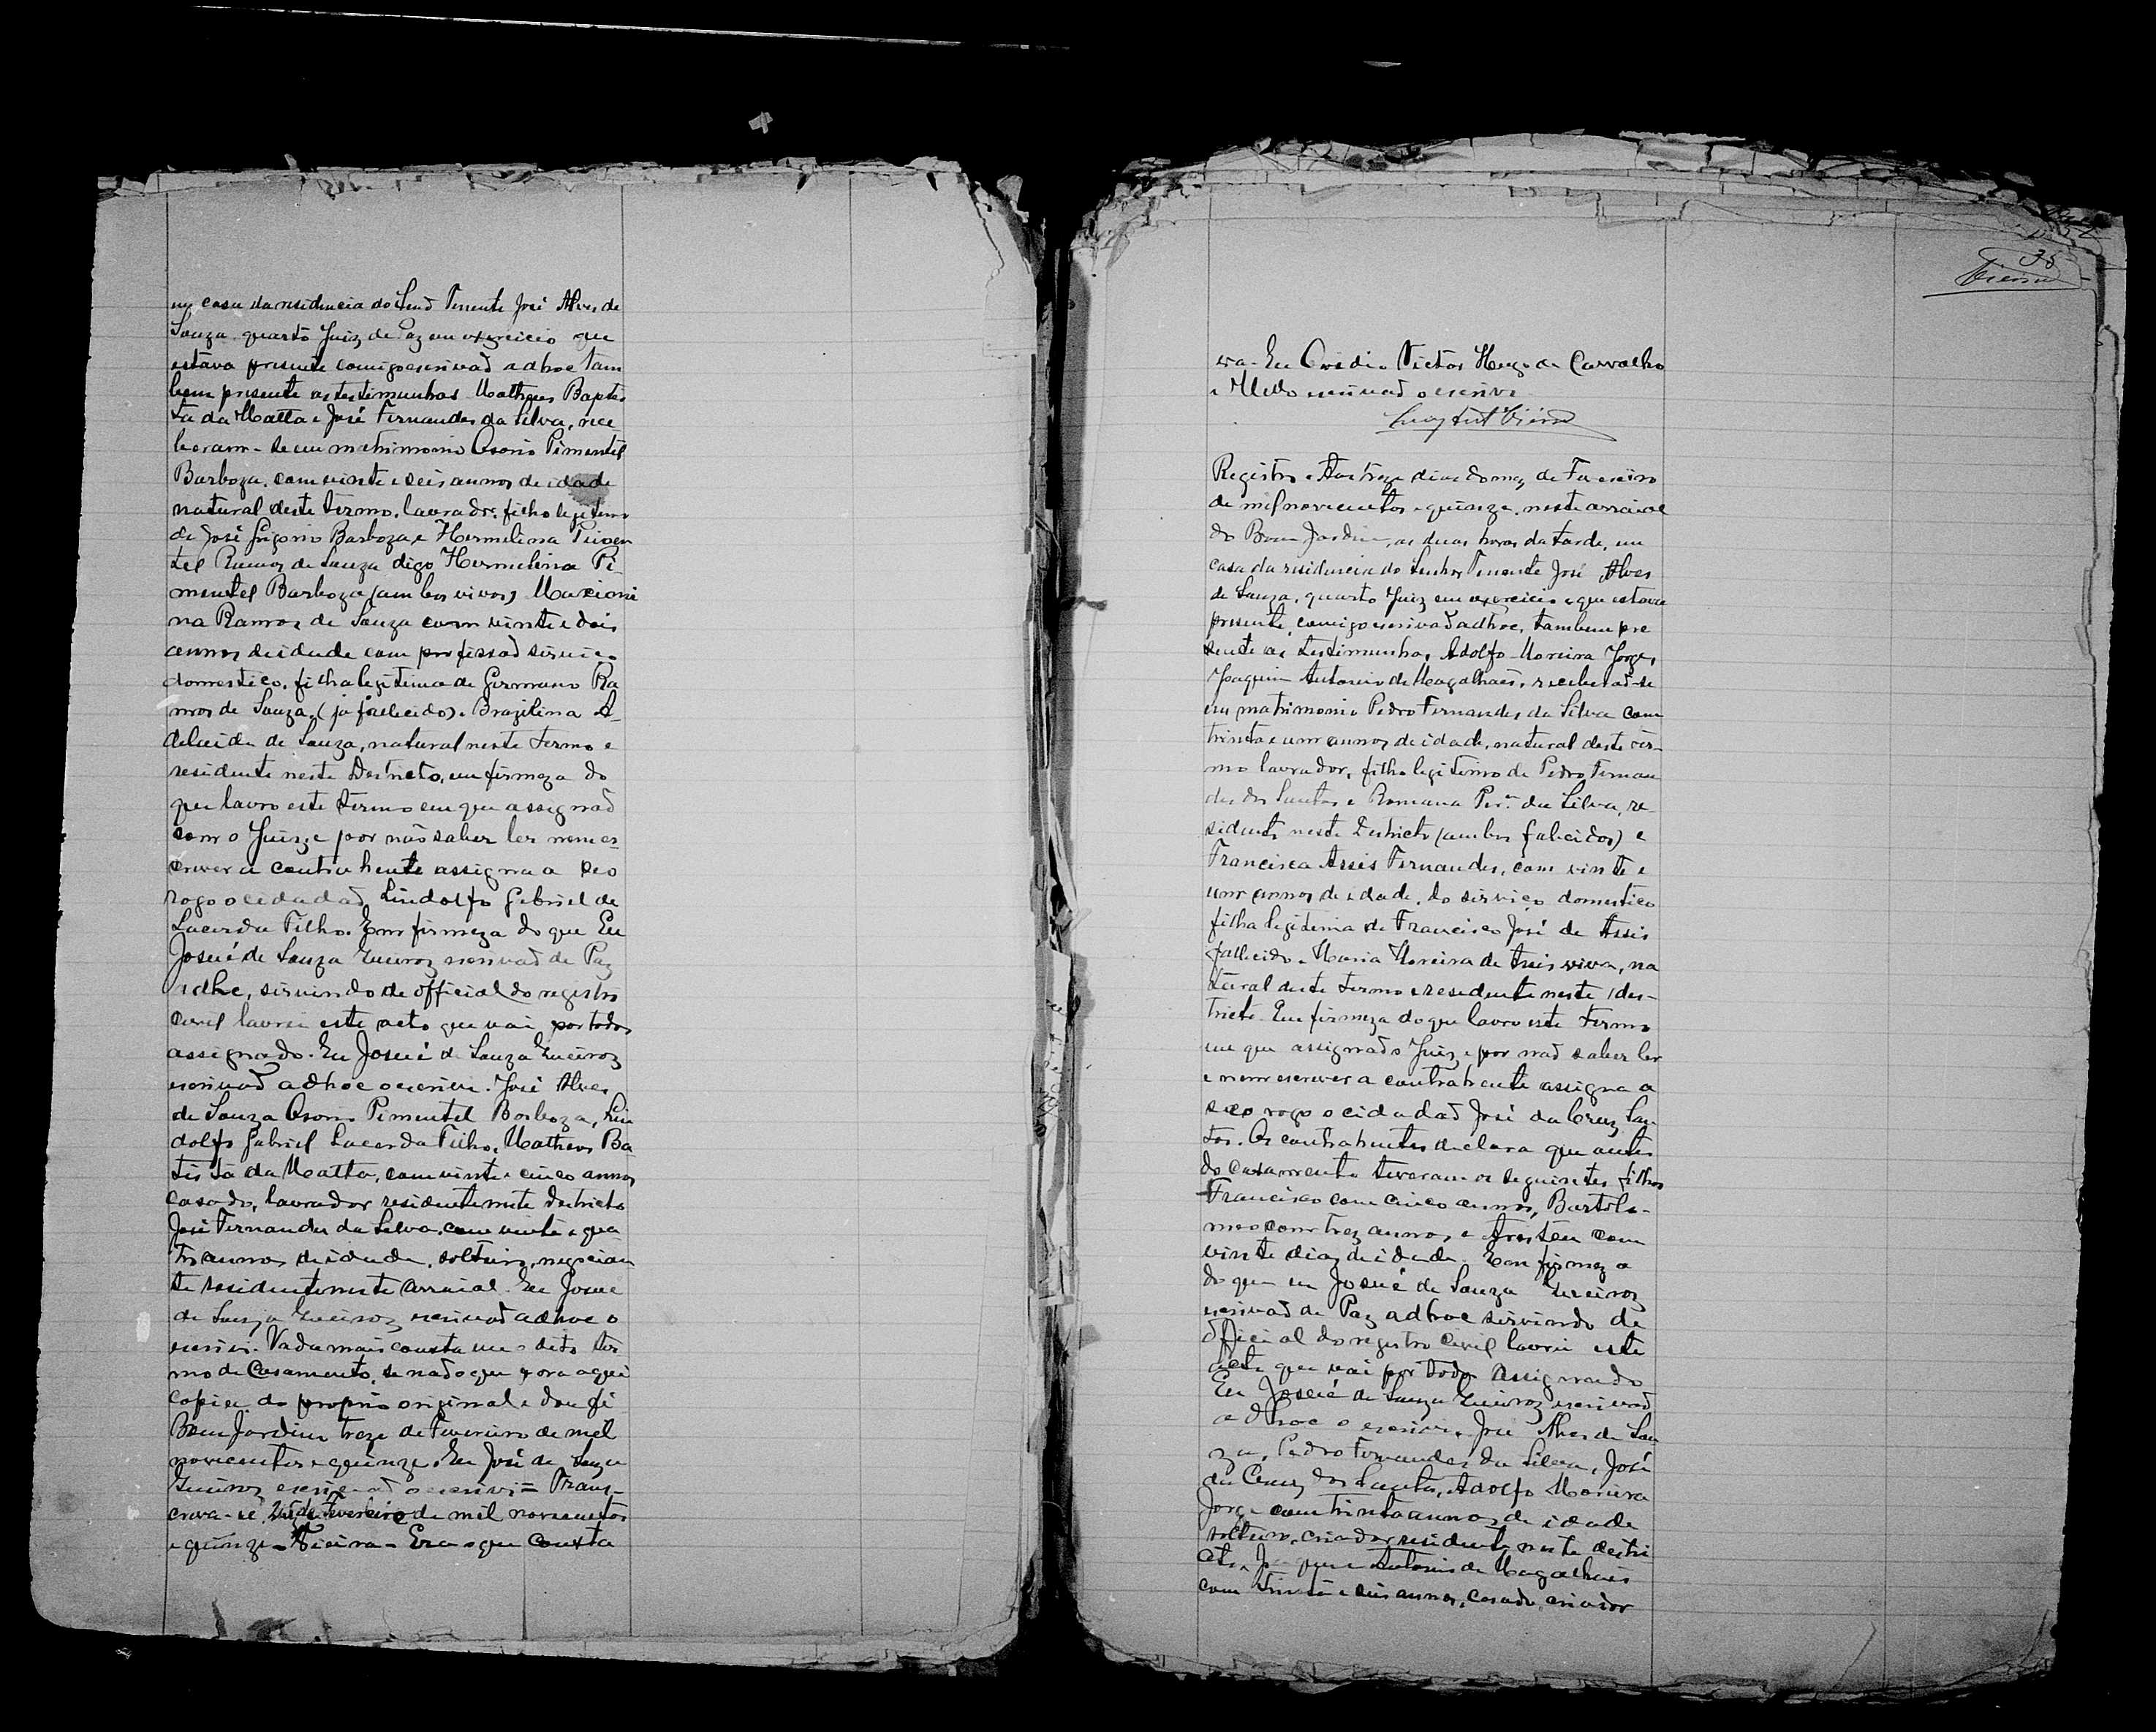 casa da residencia do Tenente José Alves de
Souza quarto Juiz de Paz em exercicio que
estava presente comigo escrivaõ adhoc tam
bem presente as testimunhas Matheus Baptis
ta da Matta e José Fernandes da Silva, rece
beram-se em matrimonio Osorio Pimentel
Barboza, com vinte e seis annos de idade
natural deste termo, lavrador, filho legitimo
de José Barboza e Hermelina Pimen
tel Ramos de Souza digo Hermelina Pi-
mentel Barboza (ambos vivos)
na Ramos de Souza com vinte e dois
annos de idade com profissaõ serviço
domestico, filha legitima de Germano Ra
mos de Souza, (já fallecido) e Brazilina A-
delaide de Souza, natural neste termo e
residente neste Destricto, em firmeza do
que lavro este termo em que assignaõ
com o Juiz, e por não saber ler nem es-
crever a contrahente assigna a seo
rogo o cidadaõ Lindolfo Gabriel de
Lacerda Filho. Em firmeza do que Eu
Josué de Souza escrivaõ de Paz
adhc, servindo de official do registro
civil lavrei este acto que vai por todos
assignado. Eu Josué de Souza
escrivaõ adhoc o escrivi. José Alves
de Souza Osorio Pimentel Barboza, Lin
dolfo Gabriel Lacerda Filho, Matheus Ba
tista da Matta, com vinte e cinco annos
casado, lavrador residente neste Destricto
José Fernandes da Silva, com vinte e qua
tro annos de idade, solteiro, negocian
te residente neste arraial. Eu Josue
de Souza escrivaõ adhoc o
escrivi. Nada mais consta em o dito ter
mo de Casamento, se naõ o que fora aqui
copiei do proprio original e dou fé
Bom Jardim treze de Fevereiro de mil
novecentos e quinze. Eu José de Souza
escrivaõ o escrivi = Trans-
creva-se, de Fevereiro de mil novecentos
e quinze - Vieira - Era o que consta
38
Vieira
va - Eu Ovidio Victor Hugo de Carvalho
e Mello escrivaõ o escrivi
Vieira
Registro. Aos treze dias do mez de
de mil novecentos e quinze, neste arraial
do Bom Jardim, as duas horas da tarde, em
casa da residencia do Senhor Tenente José Alves
de Souza, quarto Juiz em exercicio e que estava
presente, comigo escrivaõ adhoc, tambem pre
sente as testimunhas Adolfo Moreira Jorge,
Joaquim Antonio de Magalhaes, receberaõ-se
em matrimonio Pedro Fernandes da Silva com
trinta e um annos de idade, natural deste ter-
mo lavrador, filho legitimo de Pedro Fernan
des dos Santos e Romana Per.ª da Silva, re
sidente neste Destricto (ambos falicidos) e
Francisca Assis Fernandes, com vinte e
um annos de idade, do serviço domestico
filha legitima de Francisco José de Assis
fallecido e Maria Moreira de Assis viva, na
tural deste termo e residente neste des-
tricto. Em firmeza do que lavro este termo
em que assignado Juiz, e por naõ saber ler
e nem escrever a contrahente assigna a
seo rogo o cidadaõ José da Cruz San
tos. Os contrahentes declara que antes
do casamento tiveram os seguintes filhos
Francisco com cinco annos, Bartolo-
meo com trez annos, e com
vinte dias de idade. Em firmeza
do que eu Josué de Souza
escrivaõ de Paz adhoc servindo de
Official do registro Civil lavrei este
acto que vai por todos assignado
Eu Josué de Souza escrivaõ
adhoc o escrivi. José Alves de Sou
za, Pedro Fernandes da Silva, José
da Cruz dos Santos, Adolfo Moreira
Jorge com trinta annos de idade
solteiro, criador residente neste destri
cto, Joaquim Antonio de Magalhaes
com trinta e seis annos, casado, criador